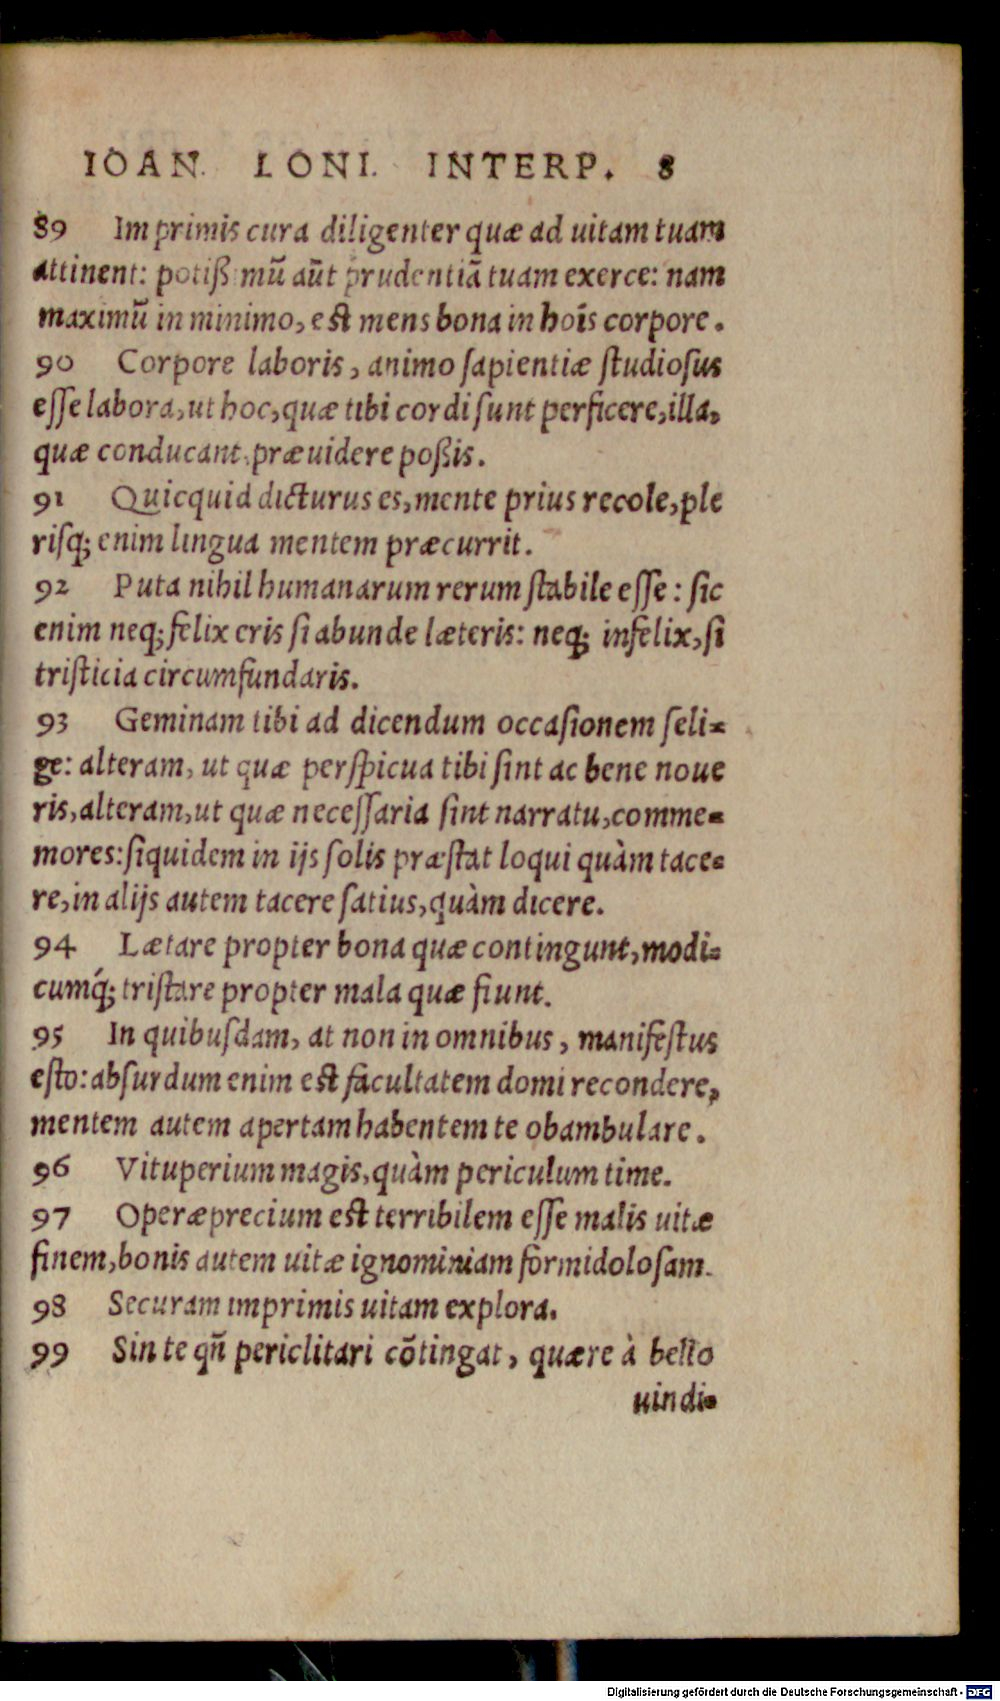 IOAN. LONI. INTERP. 8
89 Imprimis cura diligenter quæ ad uitam tuam
attinent: potiſsimũ aũt prudentiã tuam exerce: nam
maximũ in minimo, est mens bona in hoĩs corpore.
90 Corpore laboris, animo ſapientiæ ſtudioſus
eſſe labora, ut hoc, quæ tibi cordi ſunt perficere, illa,
quæ conducant, præuidere poßis.
91 Quicquid dicturus es, mente prius recole, ple
riſq; enim lingua mentem præcurrit.
92 Puta nihil humanarum rerum ſtabile eſſe: ſic
enim neq; felix eris ſi abunde læteris: neq; infelix, ſi
triſticia circumfundaris.
93 Geminam tibi ad dicendum occaſionem ſeli-
ge: alteram, ut quæ perſpicua tibi ſint ac bene noue
ris, alteram, ut quæ neceſſaria ſint narratu, comme-
mores: ſiquidem in ijs ſolis præſtat loqui quàm tace-
re, in alijs autem tacere ſatius, quàm dicere.
94 Lætare propter bona quæ contingunt, modi-
cumq́; triſtare propter mala quæ fiunt.
95 In quibuſdam, at non in omnibus, manifeſtus
eſto: abſurdum enim est facultatem domi recondere,
mentem autem apertam habentem te obambulare.
96 Vituperium magis, quàm periculum time.
97 Operæprecium est terribilem eſſe malis uitæ
finem, bonis autem uitæ ignominiam formidoloſam.
98 Securam imprimis uitam explora.
99 Sin te qñ periclitari cõtingat, quære à bello
uindi-
Digitalisierung gefördert durch die Deutsche Forschungsgemeinschaft - DFG